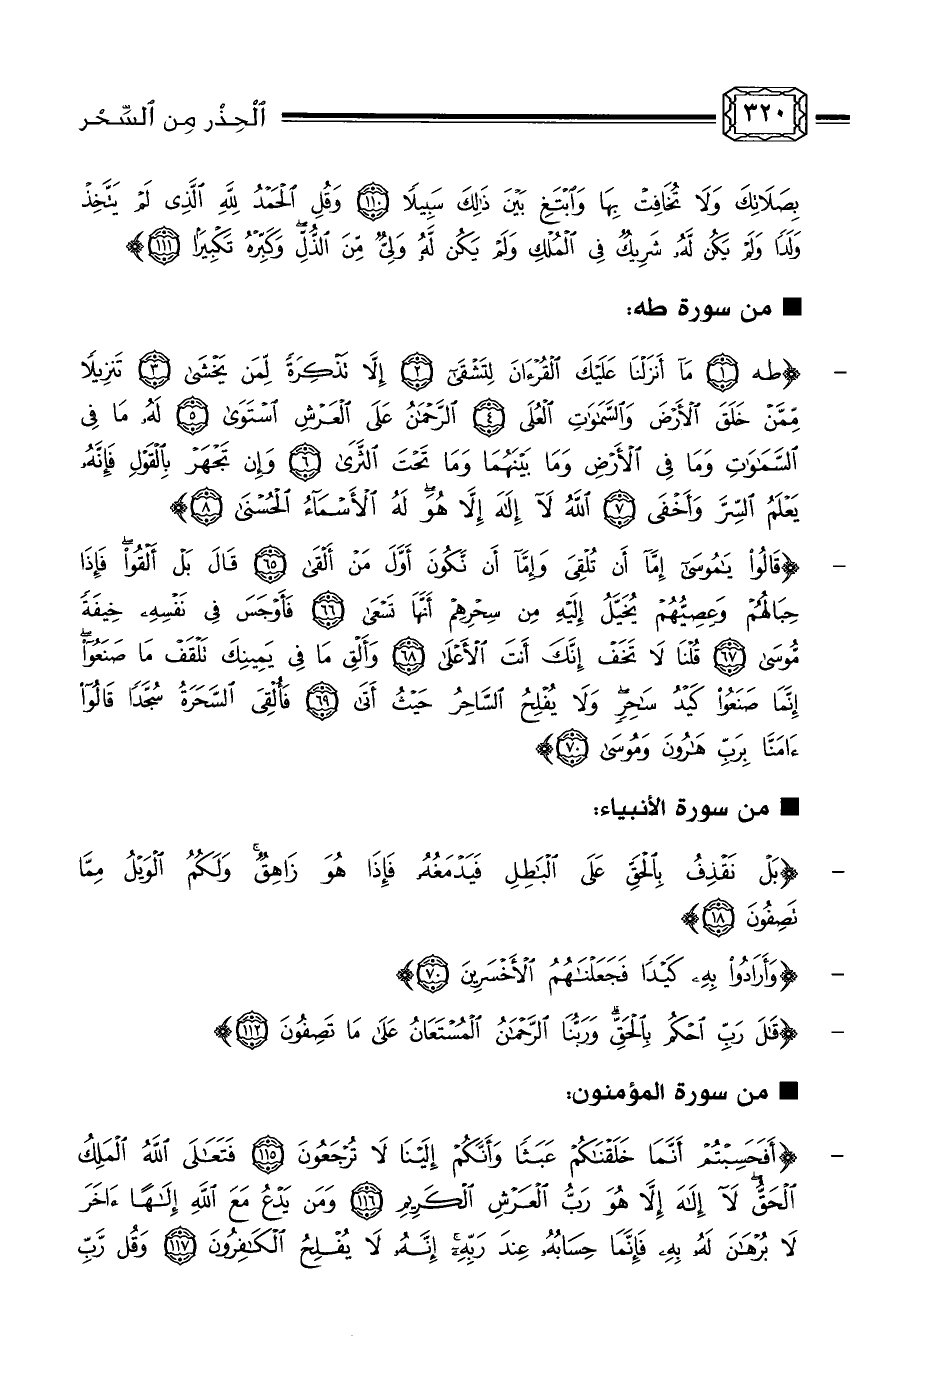 ٣٢٠ الْحِذْر مِن السِّحْر
بِصَلَاتِكَ وَلَا تُخَافِتْ بِهَا وَٱبْتَغِ بَيْنَ ذَٰلِكَ سَبِيلًا ﴿١١٠﴾ وَقُلِ ٱلْحَمْدُ لِلَّهِ ٱلَّذِى لَمْ يَتَّخِذْ
وَلَدًا وَلَمْ يَكُن لَّهُۥ شَرِيكٌ فِى ٱلْمُلْكِ وَلَمْ يَكُن لَّهُۥ وَلِىٌّ مِّنَ ٱلذُّلِّ ۖ وَكَبِّرْهُ تَكْبِيرًۢا ﴿١١١﴾ ﴾
■ من سورة طه:
- ﴿ طه ﴿١﴾ مَآ أَنزَلْنَا عَلَيْكَ ٱلْقُرْءَانَ لِتَشْقَىٰٓ ﴿٢﴾ إِلَّا تَذْكِرَةً لِّمَن يَخْشَىٰ ﴿٣﴾ تَنزِيلًا
مِّمَّنْ خَلَقَ ٱلْأَرْضَ وَٱلسَّمَٰوَٰتِ ٱلْعُلَى ﴿٤﴾ ٱلرَّحْمَٰنُ عَلَى ٱلْعَرْشِ ٱسْتَوَىٰ ﴿٥﴾ لَهُۥ مَا فِى
ٱلسَّمَٰوَٰتِ وَمَا فِى ٱلْأَرْضِ وَمَا بَيْنَهُمَا وَمَا تَحْتَ ٱلثَّرَىٰ ﴿٦﴾ وَإِن تَجْهَرْ بِٱلْقَوْلِ فَإِنَّهُۥ
يَعْلَمُ ٱلسِّرَّ وَأَخْفَى ﴿٧﴾ ٱللَّهُ لَآ إِلَٰهَ إِلَّا هُوَ ۖ لَهُ ٱلْأَسْمَآءُ ٱلْحُسْنَىٰ ﴿٨﴾ ﴾
- ﴿ قَالُوا۟ يَٰمُوسَىٰٓ إِمَّآ أَن تُلْقِىَ وَإِمَّآ أَن نَّكُونَ أَوَّلَ مَنْ أَلْقَىٰ ﴿٦٥﴾ قَالَ بَلْ أَلْقُوا۟ ۖ فَإِذَا
حِبَالُهُمْ وَعِصِيُّهُمْ يُخَيَّلُ إِلَيْهِ مِن سِحْرِهِمْ أَنَّهَا تَسْعَىٰ ﴿٦٦﴾ فَأَوْجَسَ فِى نَفْسِهِۦ خِيفَةً
مُّوسَىٰ ﴿٦٧﴾ قُلْنَا لَا تَخَفْ إِنَّكَ أَنتَ ٱلْأَعْلَىٰ ﴿٦٨﴾ وَأَلْقِ مَا فِى يَمِينِكَ تَلْقَفْ مَا صَنَعُوٓا۟ ۖ
إِنَّمَا صَنَعُوا۟ كَيْدُ سَٰحِرٍ ۖ وَلَا يُفْلِحُ ٱلسَّاحِرُ حَيْثُ أَتَىٰ ﴿٦٩﴾ فَأُلْقِىَ ٱلسَّحَرَةُ سُجَّدًا قَالُوٓا۟
ءَامَنَّا بِرَبِّ هَٰرُونَ وَمُوسَىٰ ﴿٧٠﴾ ﴾
■ من سورة الأنبياء:
- ﴿ بَلْ نَقْذِفُ بِٱلْحَقِّ عَلَى ٱلْبَٰطِلِ فَيَدْمَغُهُۥ فَإِذَا هُوَ زَاهِقٌ ۚ وَلَكُمُ ٱلْوَيْلُ مِمَّا
تَصِفُونَ ﴿١٨﴾ ﴾
- ﴿ وَأَرَادُوا۟ بِهِۦ كَيْدًا فَجَعَلْنَٰهُمُ ٱلْأَخْسَرِينَ ﴿٧٠﴾ ﴾
- ﴿ قَٰلَ رَبِّ ٱحْكُم بِٱلْحَقِّ ۗ وَرَبُّنَا ٱلرَّحْمَٰنُ ٱلْمُسْتَعَانُ عَلَىٰ مَا تَصِفُونَ ﴿١١٢﴾ ﴾
■ من سورة المؤمنون:
- ﴿ أَفَحَسِبْتُمْ أَنَّمَا خَلَقْنَٰكُمْ عَبَثًا وَأَنَّكُمْ إِلَيْنَا لَا تُرْجَعُونَ ﴿١١٥﴾ فَتَعَٰلَى ٱللَّهُ ٱلْمَلِكُ
ٱلْحَقُّ ۖ لَآ إِلَٰهَ إِلَّا هُوَ رَبُّ ٱلْعَرْشِ ٱلْكَرِيمِ ﴿١١٦﴾ وَمَن يَدْعُ مَعَ ٱللَّهِ إِلَٰهًا ءَاخَرَ
لَا بُرْهَٰنَ لَهُۥ بِهِۦ فَإِنَّمَا حِسَابُهُۥ عِندَ رَبِّهِۦٓ ۚ إِنَّهُۥ لَا يُفْلِحُ ٱلْكَٰفِرُونَ ﴿١١٧﴾ وَقُل رَّبِّ